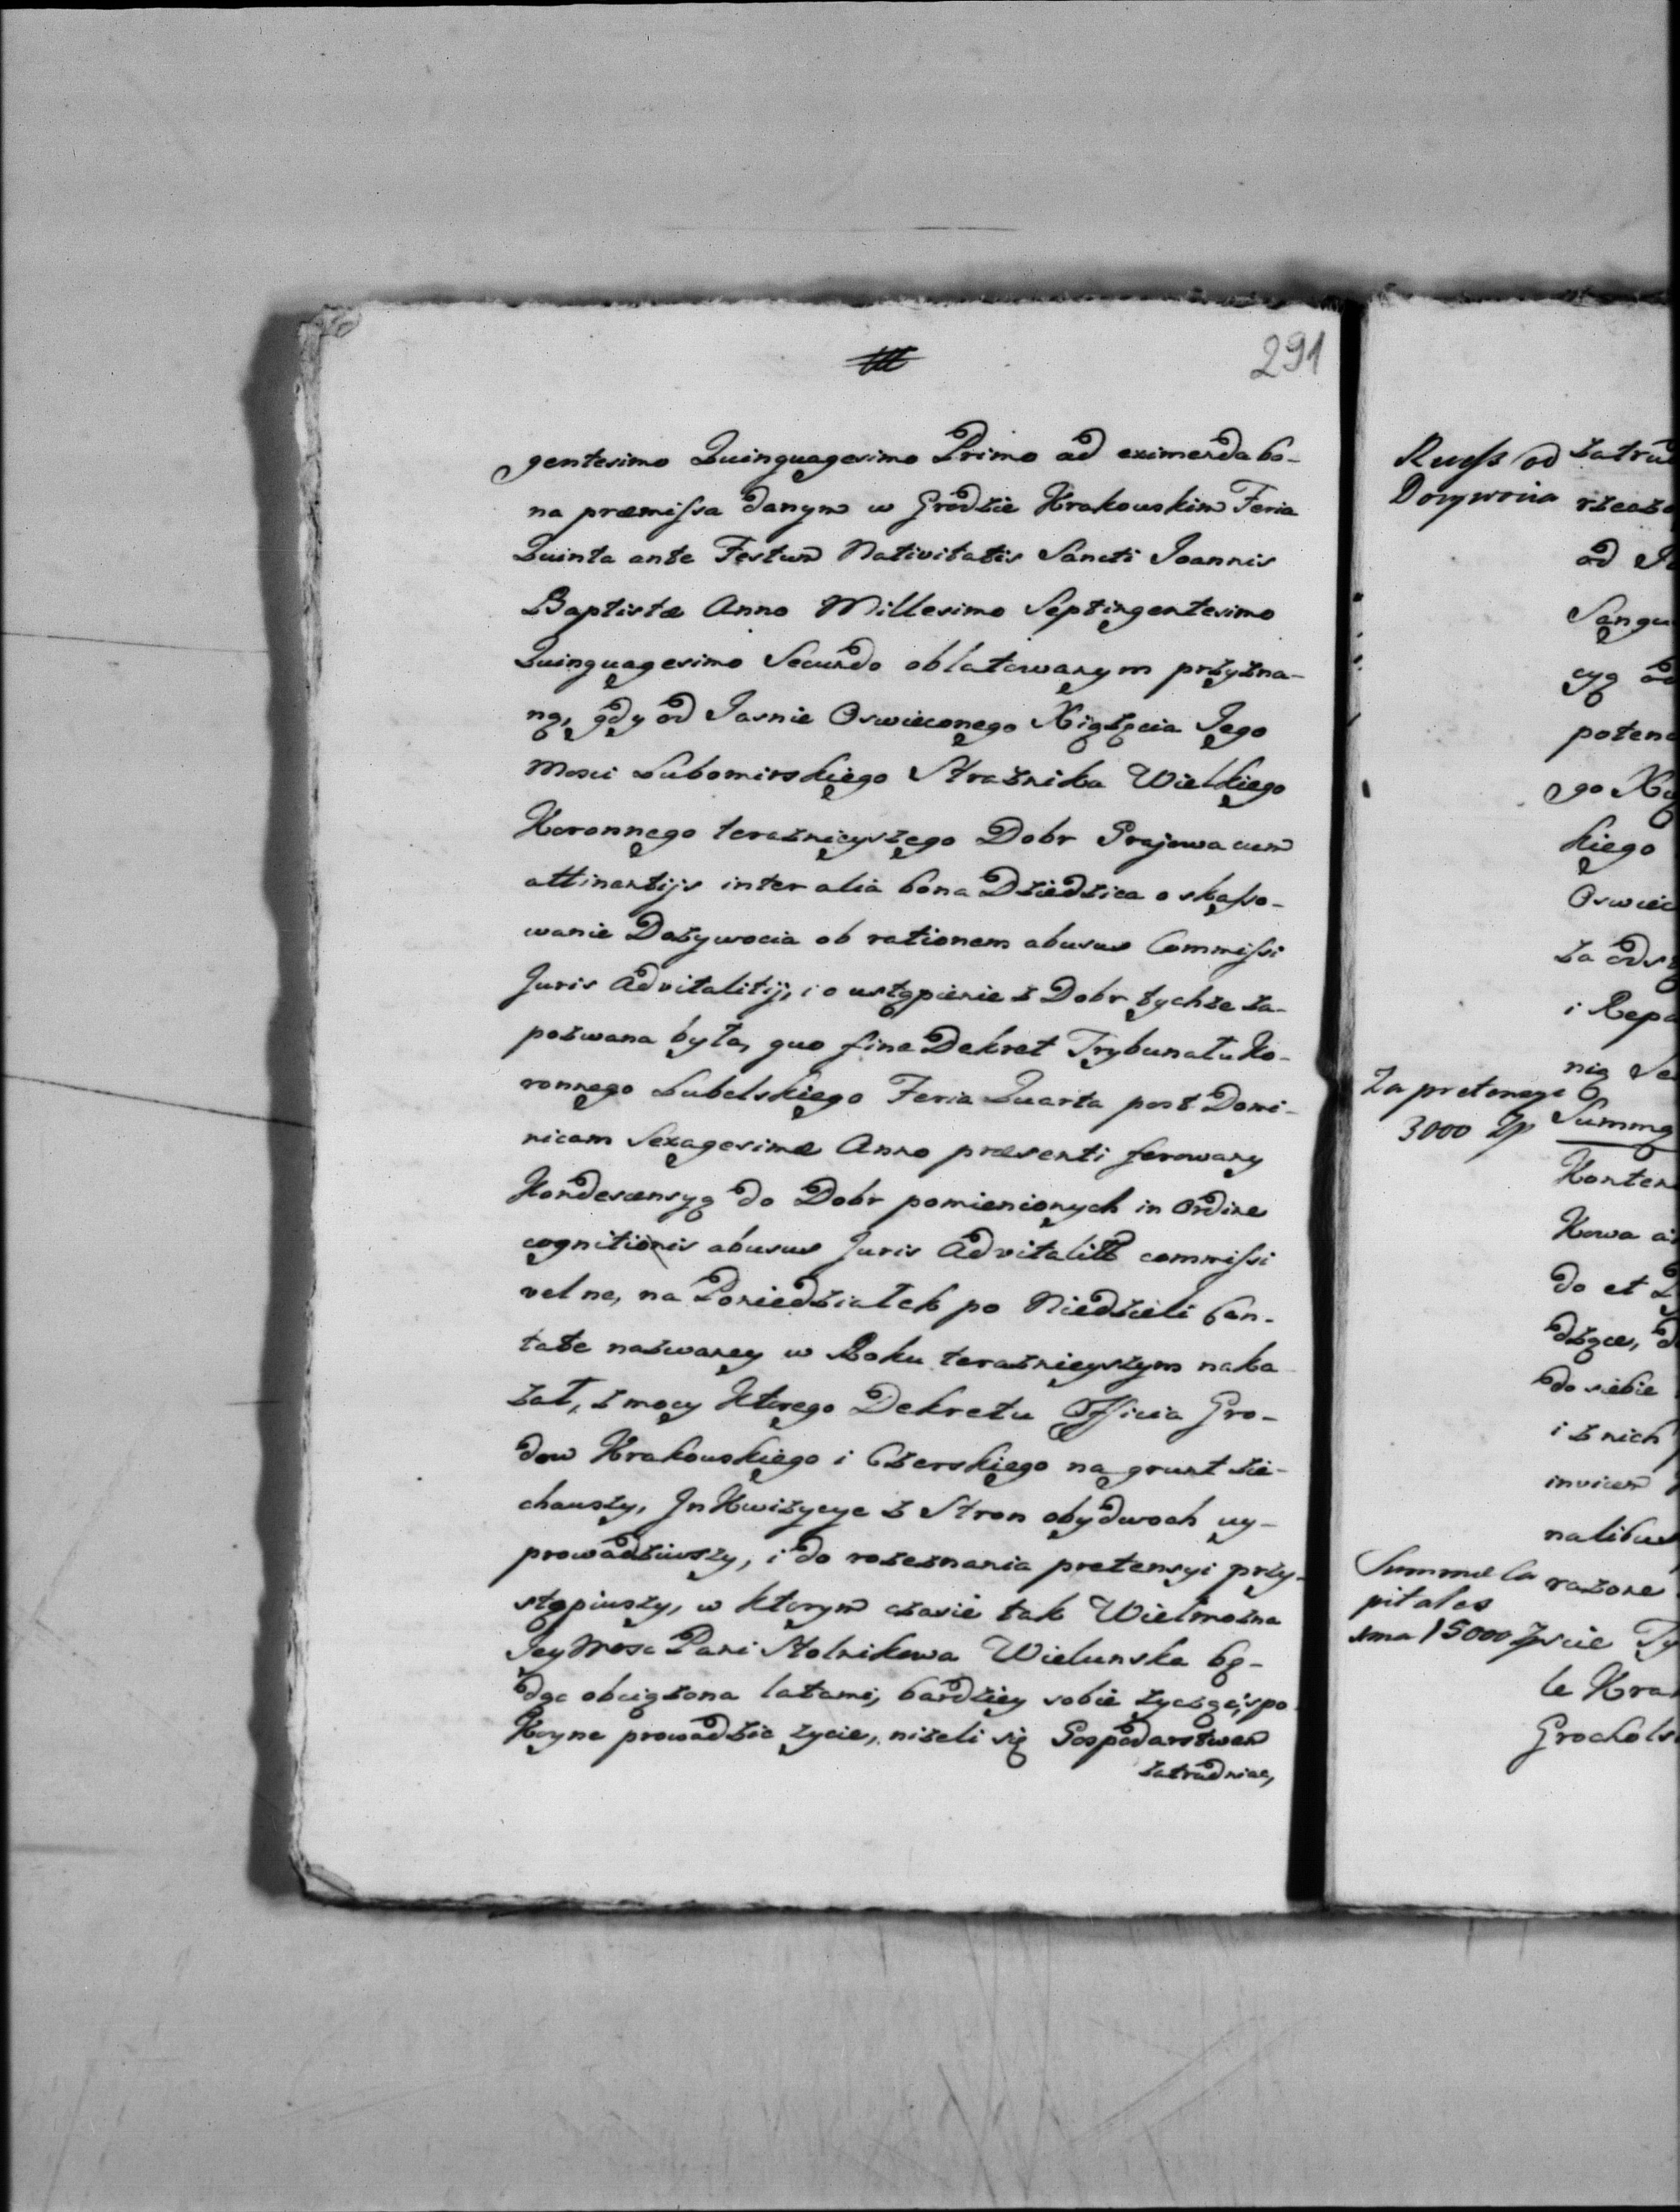 291
gentesimo Quinquagesimo Primo ad eximenda bo-
na præmissa danym w Grodzie Krakowskim Feria
Quinta ante Festum Nativitatis Sancti Joannis
Baptistæ Anno Millesimo Septingentesimo
Quinquagesimo Secundo oblatowanym przyzna-
ną, gdy od Jasnie Oswieconego Xiążęcia Jego
Mosci Lubomirskiego Strażnika Wielkiego
Koronnego teraznieyszego Dobr Grajowa cum
attinentijs inter alia bona Dziedzica o skasso-
wanie Dożywocia ob rationem abusus Commissi
Juris Advitalitij, i o ustąpienie z Dobr tychże za-
pozwana była, quo fine Dekret Trybunału Ko-
ronnego Lubelskiego Feria Quarta post Domi-
nicam Sexagesimæ Anno præsenti ferowany
Kondescensyą do Dobr pomienionych in Ordine
cognitionis abusus Juris Advitalitt commissi
vel ne, na Poniedziałek po Niedzieli Can-
tate nazwaney w Roku teraznieyszym naka
zał, z mocy Ktorego Dekretu Officia Gro-
dow Krakowskiego i Czerskiego na grunt zie-
chawszy, InKwizycye z Stron obydwoch wy-
prowadziwszy, i do rozeznania pretensyi przy-
stąpiwszy, w ktorym czasie tak Wielmożna
Jey Mosc Pani Stolnikowa Wielunska bę-
dąc obciążona latami, bardziey sobie życząc spo
Koyne prowadzic życie, niżeli się Gospodarstwem
zatrudniac,
Dozywocia
rzeczo
od
Sangu
cyą od
potenc
go
kiego
Oswiec
za
i Repa
nią Se
Za pretensye
3000 Zp
Summą
Konten
Kowa
do et
dzące,
do siebie
i z nich
invicem
nalibus
Summæ Ca
pitales
razone
15000
le Kra
Grochols